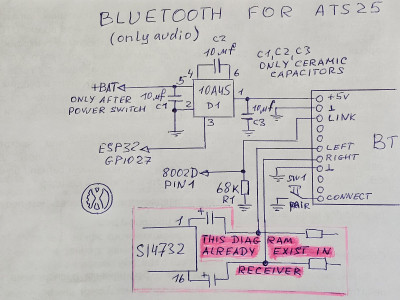 BLUETOOTH FOR ATS25
(only audio)
C2
10 µf
C1, C2, C3
ONLY CERAMIC
CAPACITORS
4
6
+BAT
5
ONLY AFTER
POWER SWITCH
10 µf
C1
2
10A45
D1
1
3
10 µf
C3
+5V
⊥
LINK
BT
LEFT
RIGHT
⊥
SW1
PAIR
CONNECT
ESP32
GPIO27
8002D
PIN1
68K
R1
SI4732
1
+
16
+
THIS DIAGRAM
ALREADY EXIST IN
RECEIVER